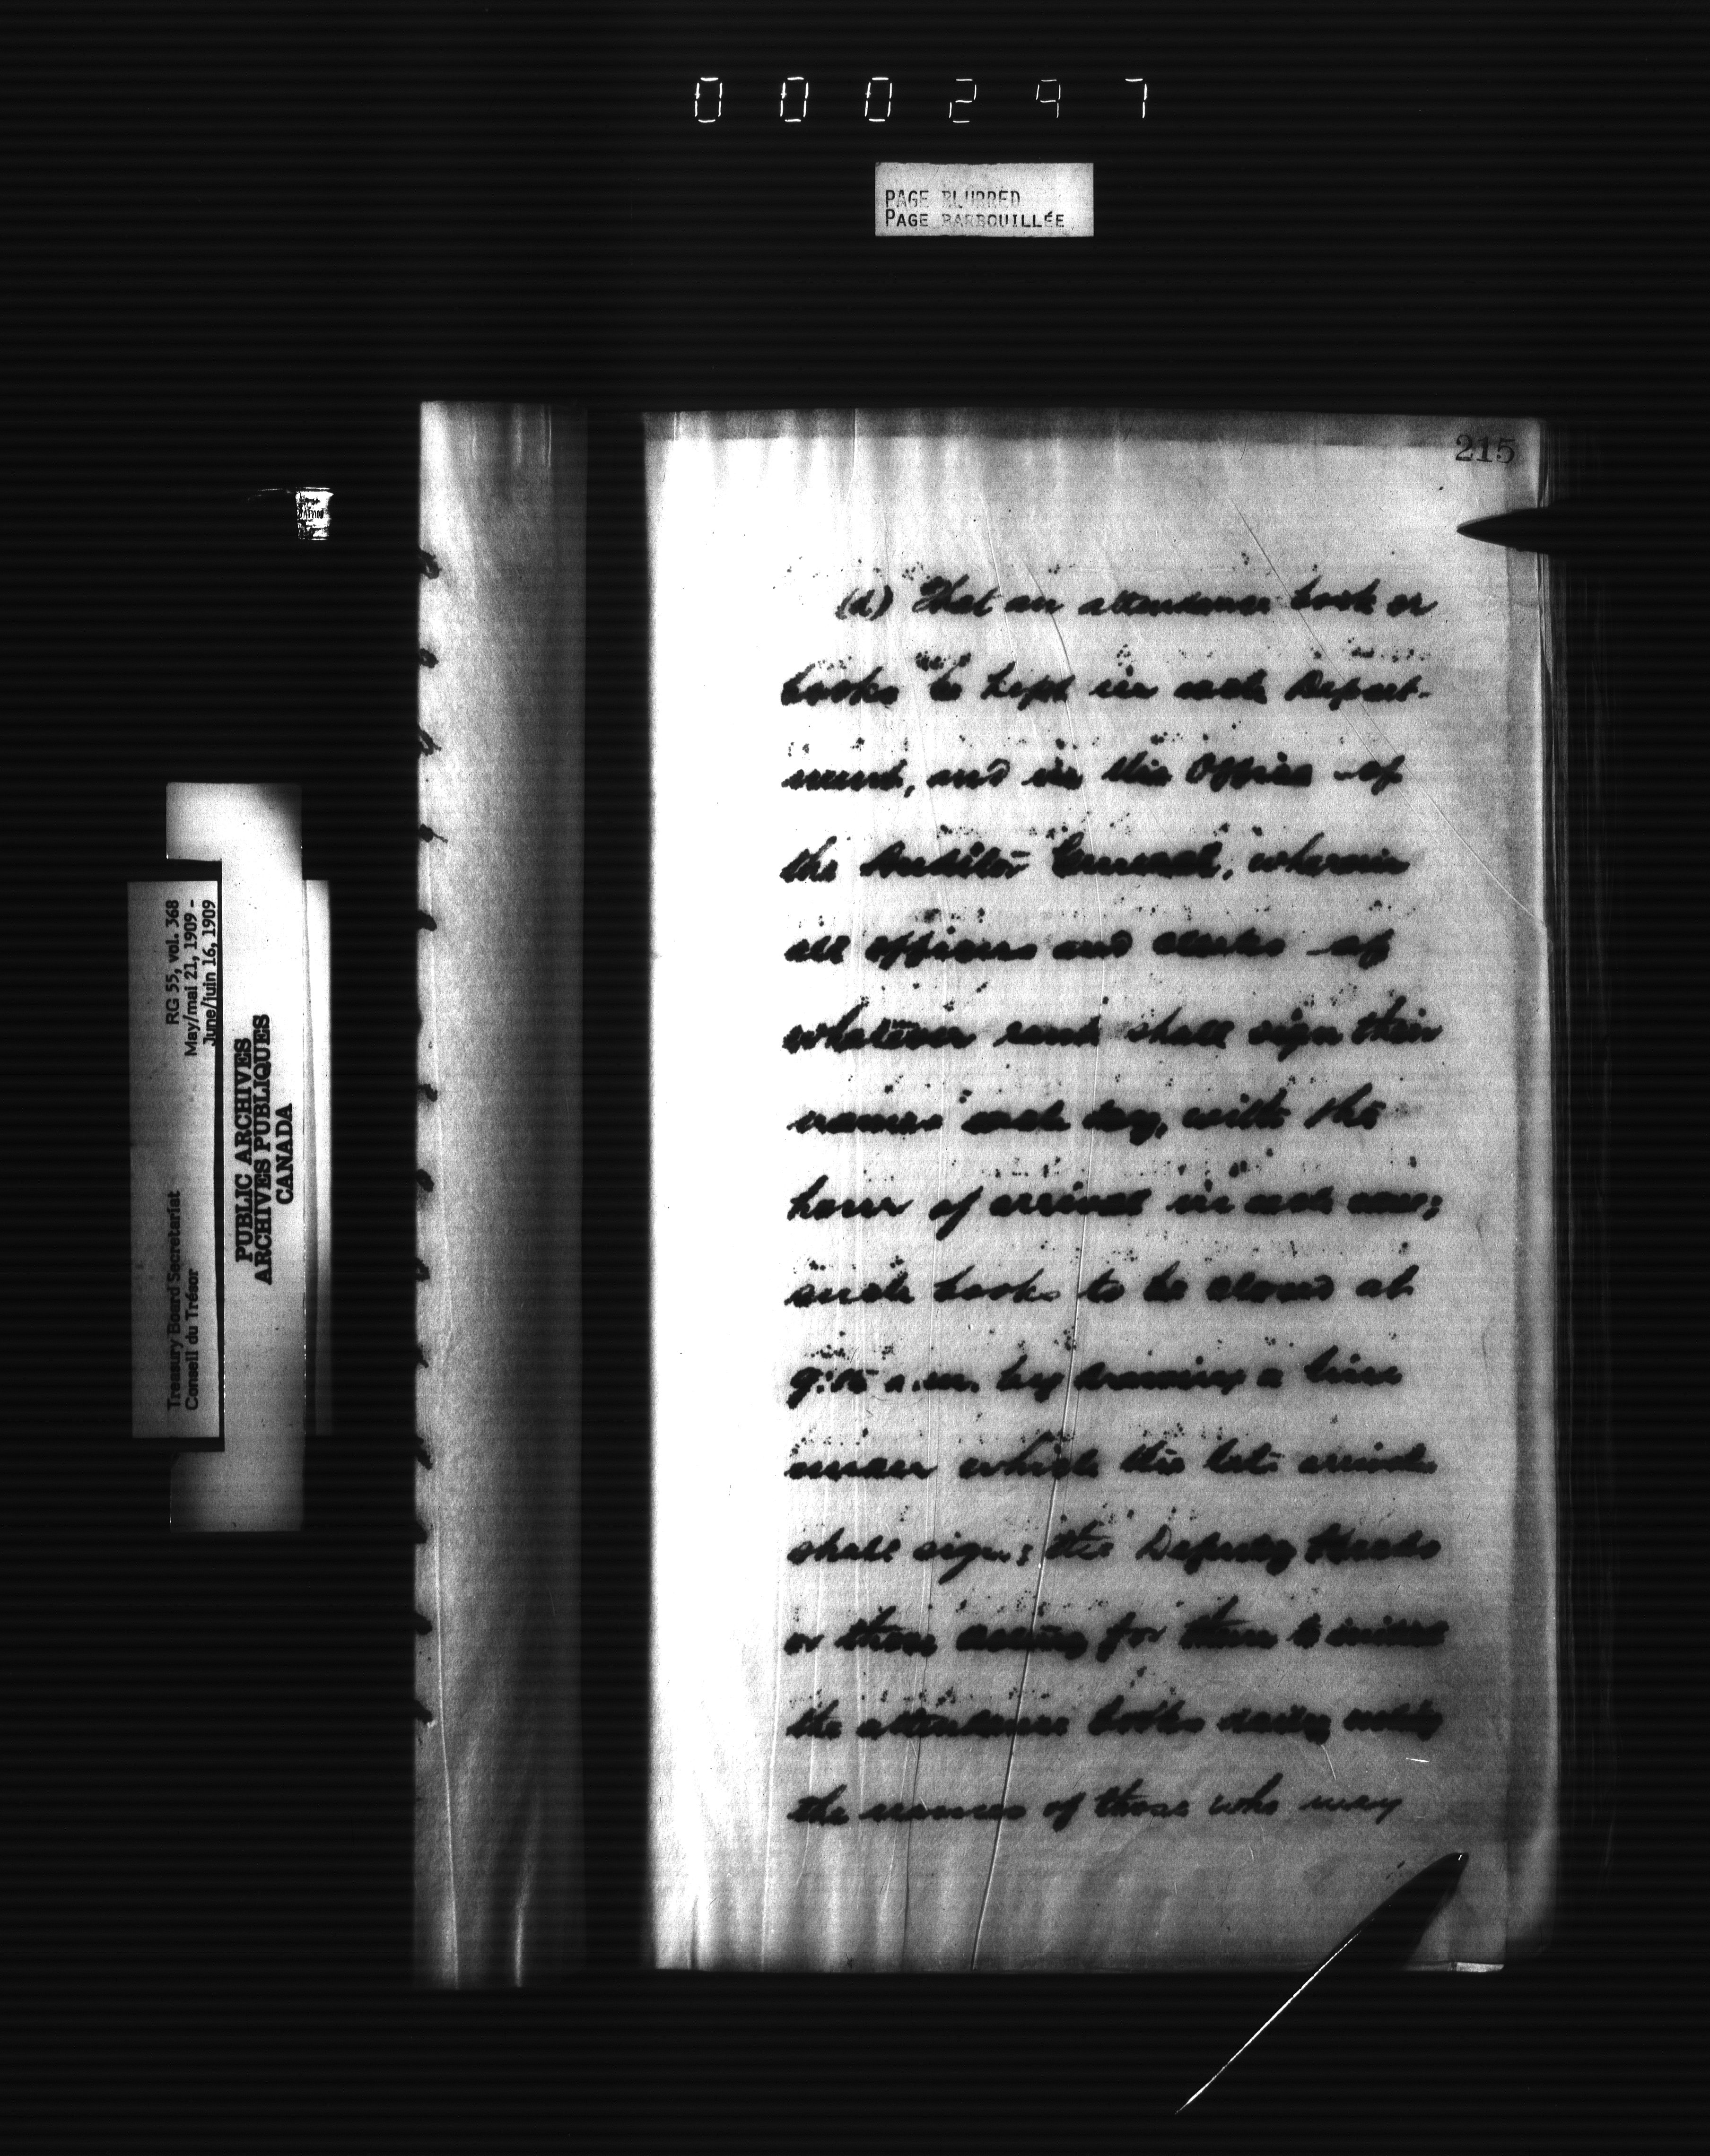 000297
PAGE BLURRED
PAGE BARBOUILLÉE
215
(d) That an attendance book or
books be kept in each Depart-
ment, and in the Office of
the Auditor General, wherein
all officers and clerks of
whatever rank shall sign their
names each day, with the
hour of arrival in each case;
such books to be closed at
a.m. by drawing a line
under which the late arrivals
shall sign; the Deputy Heads
or those acting for them to initial
the attendance books daily noting
the names of those who may
RG 55, vol. 368
May/mai 21, 1909 -
June/juin 16, 1909
Treasury Board Secretariat
Conseil du Trésor
PUBLIC ARCHIVES
ARCHIVES PUBLIQUES
CANADA